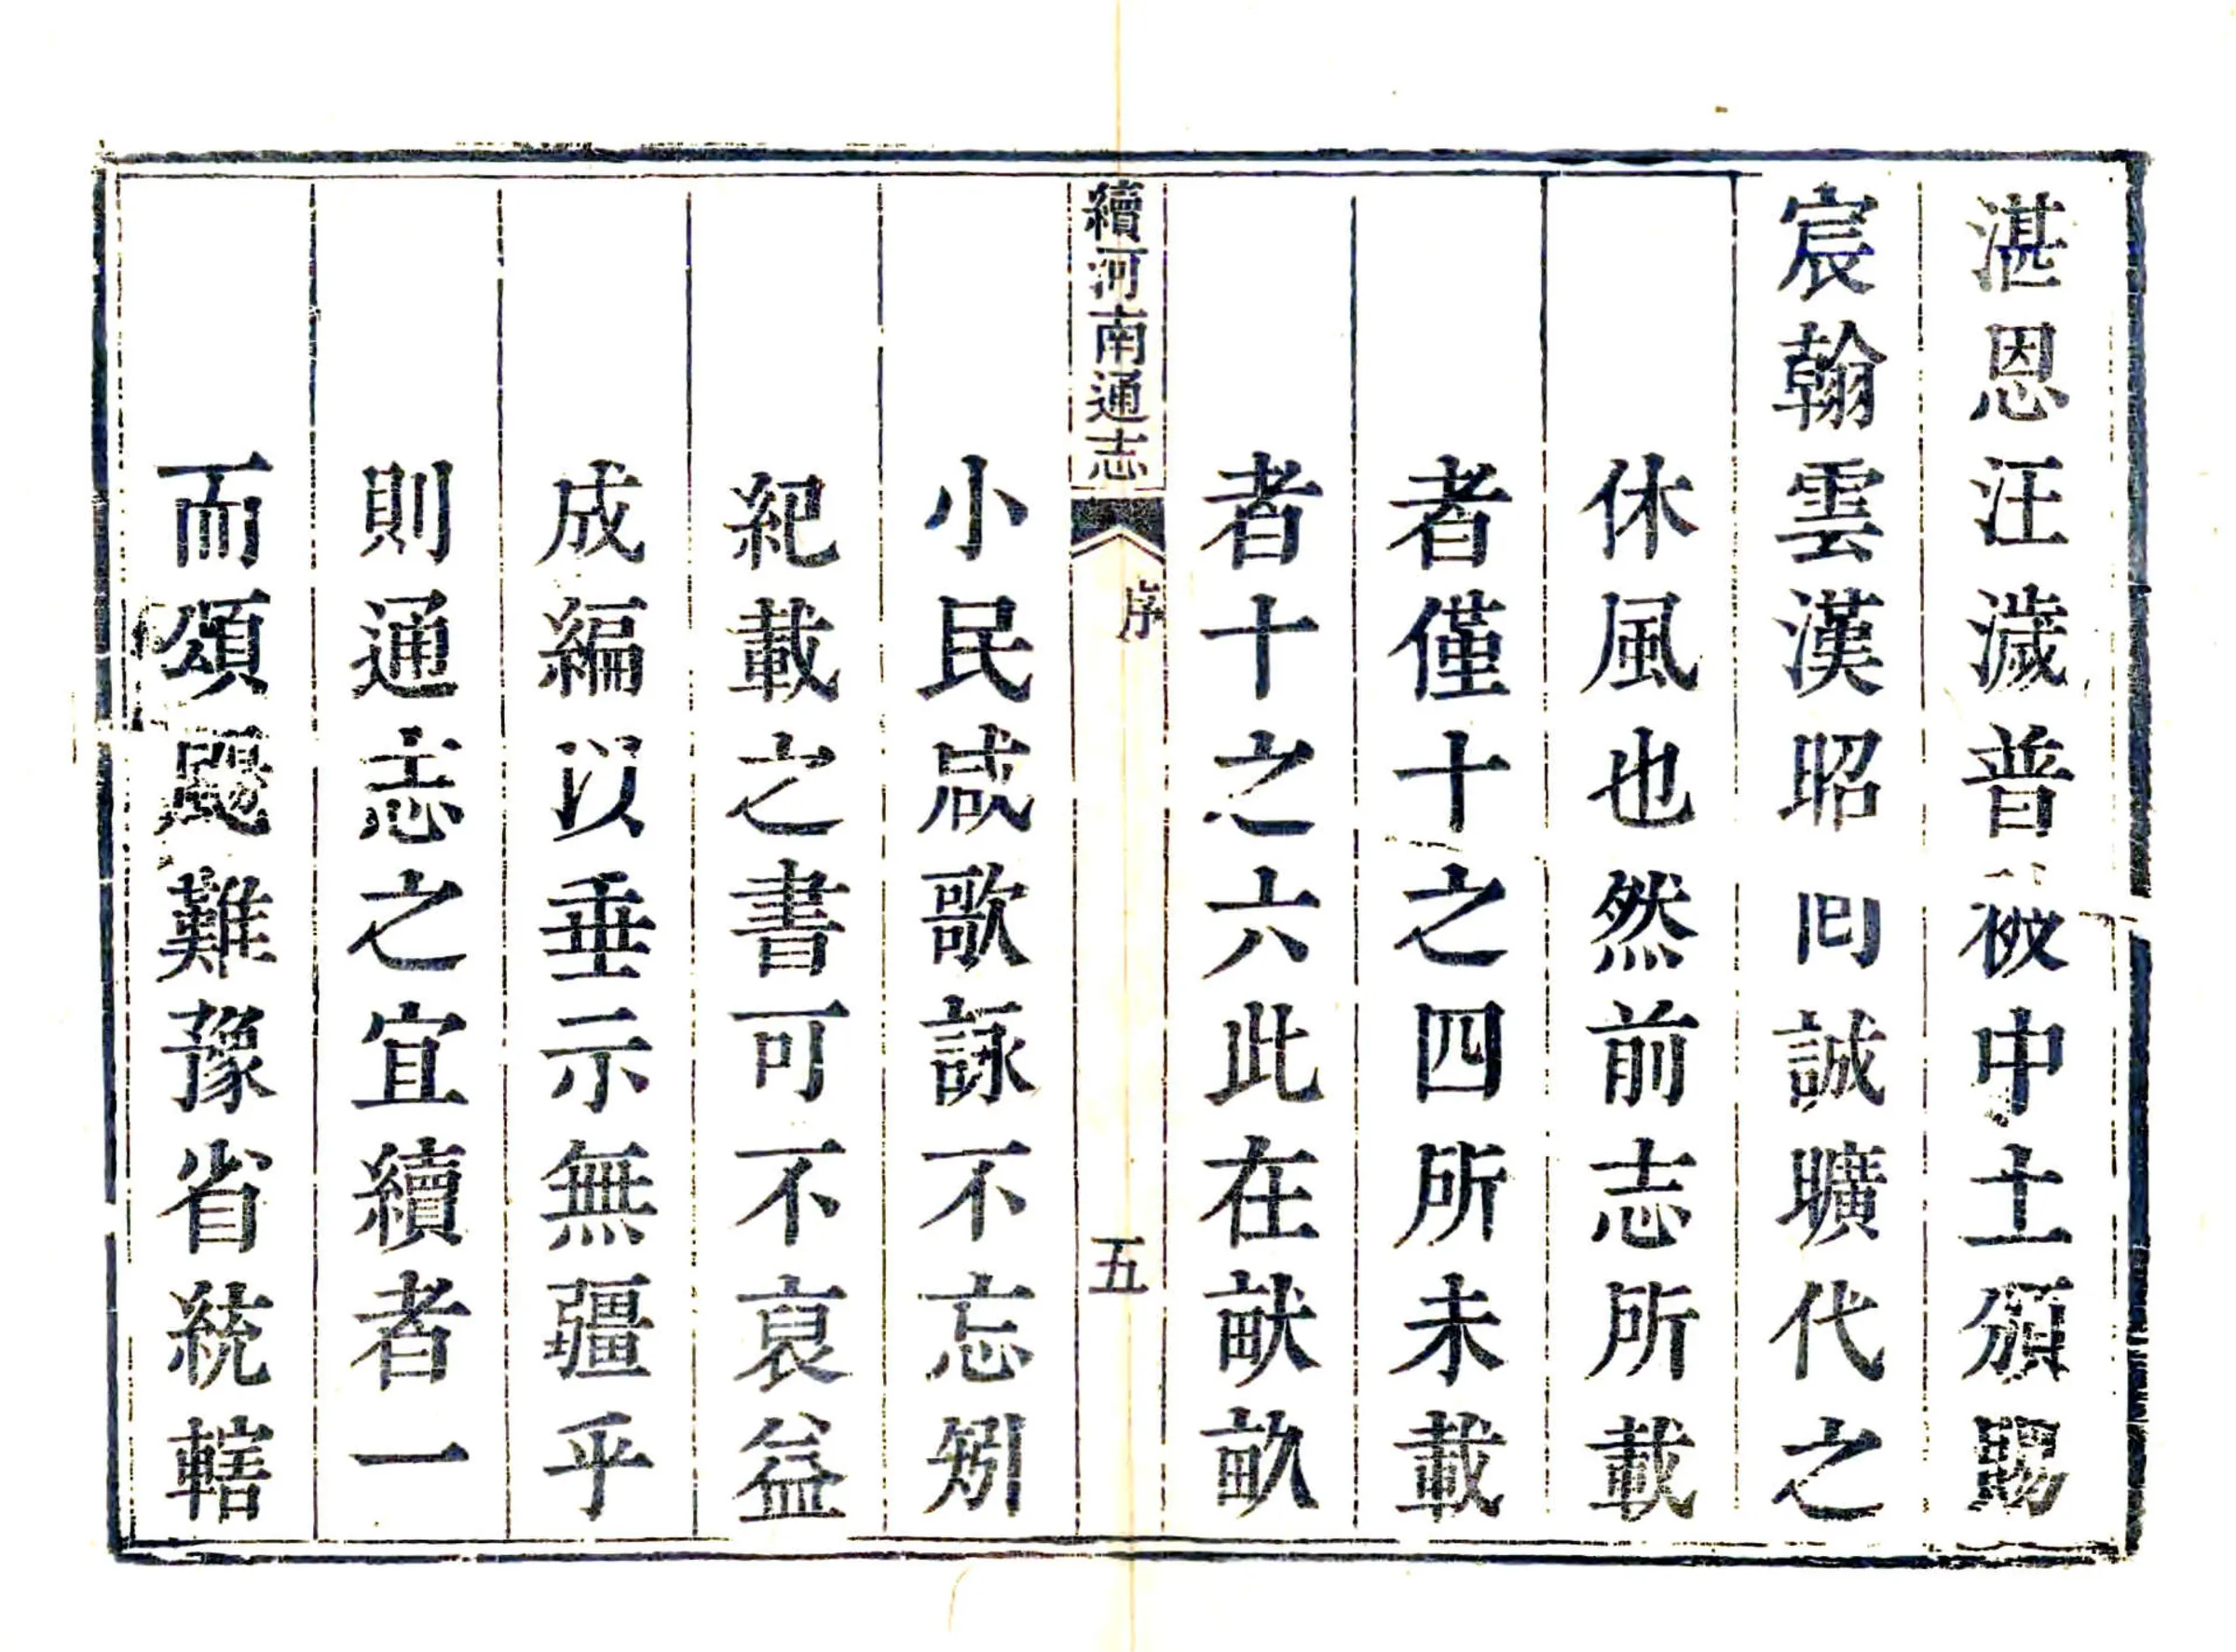 湛恩汪濊普被中土頒賜
宸翰雲漢昭回誠曠代之
休風也然前志所載
者僅十之四所未載
者十之六此在畎畝
續河南通志
序
五
小民咸歌詠不忘矧
紀載之書可不裒益
成編以垂示無疆乎
則通志之宜續者一
而頌颺難豫省統轄